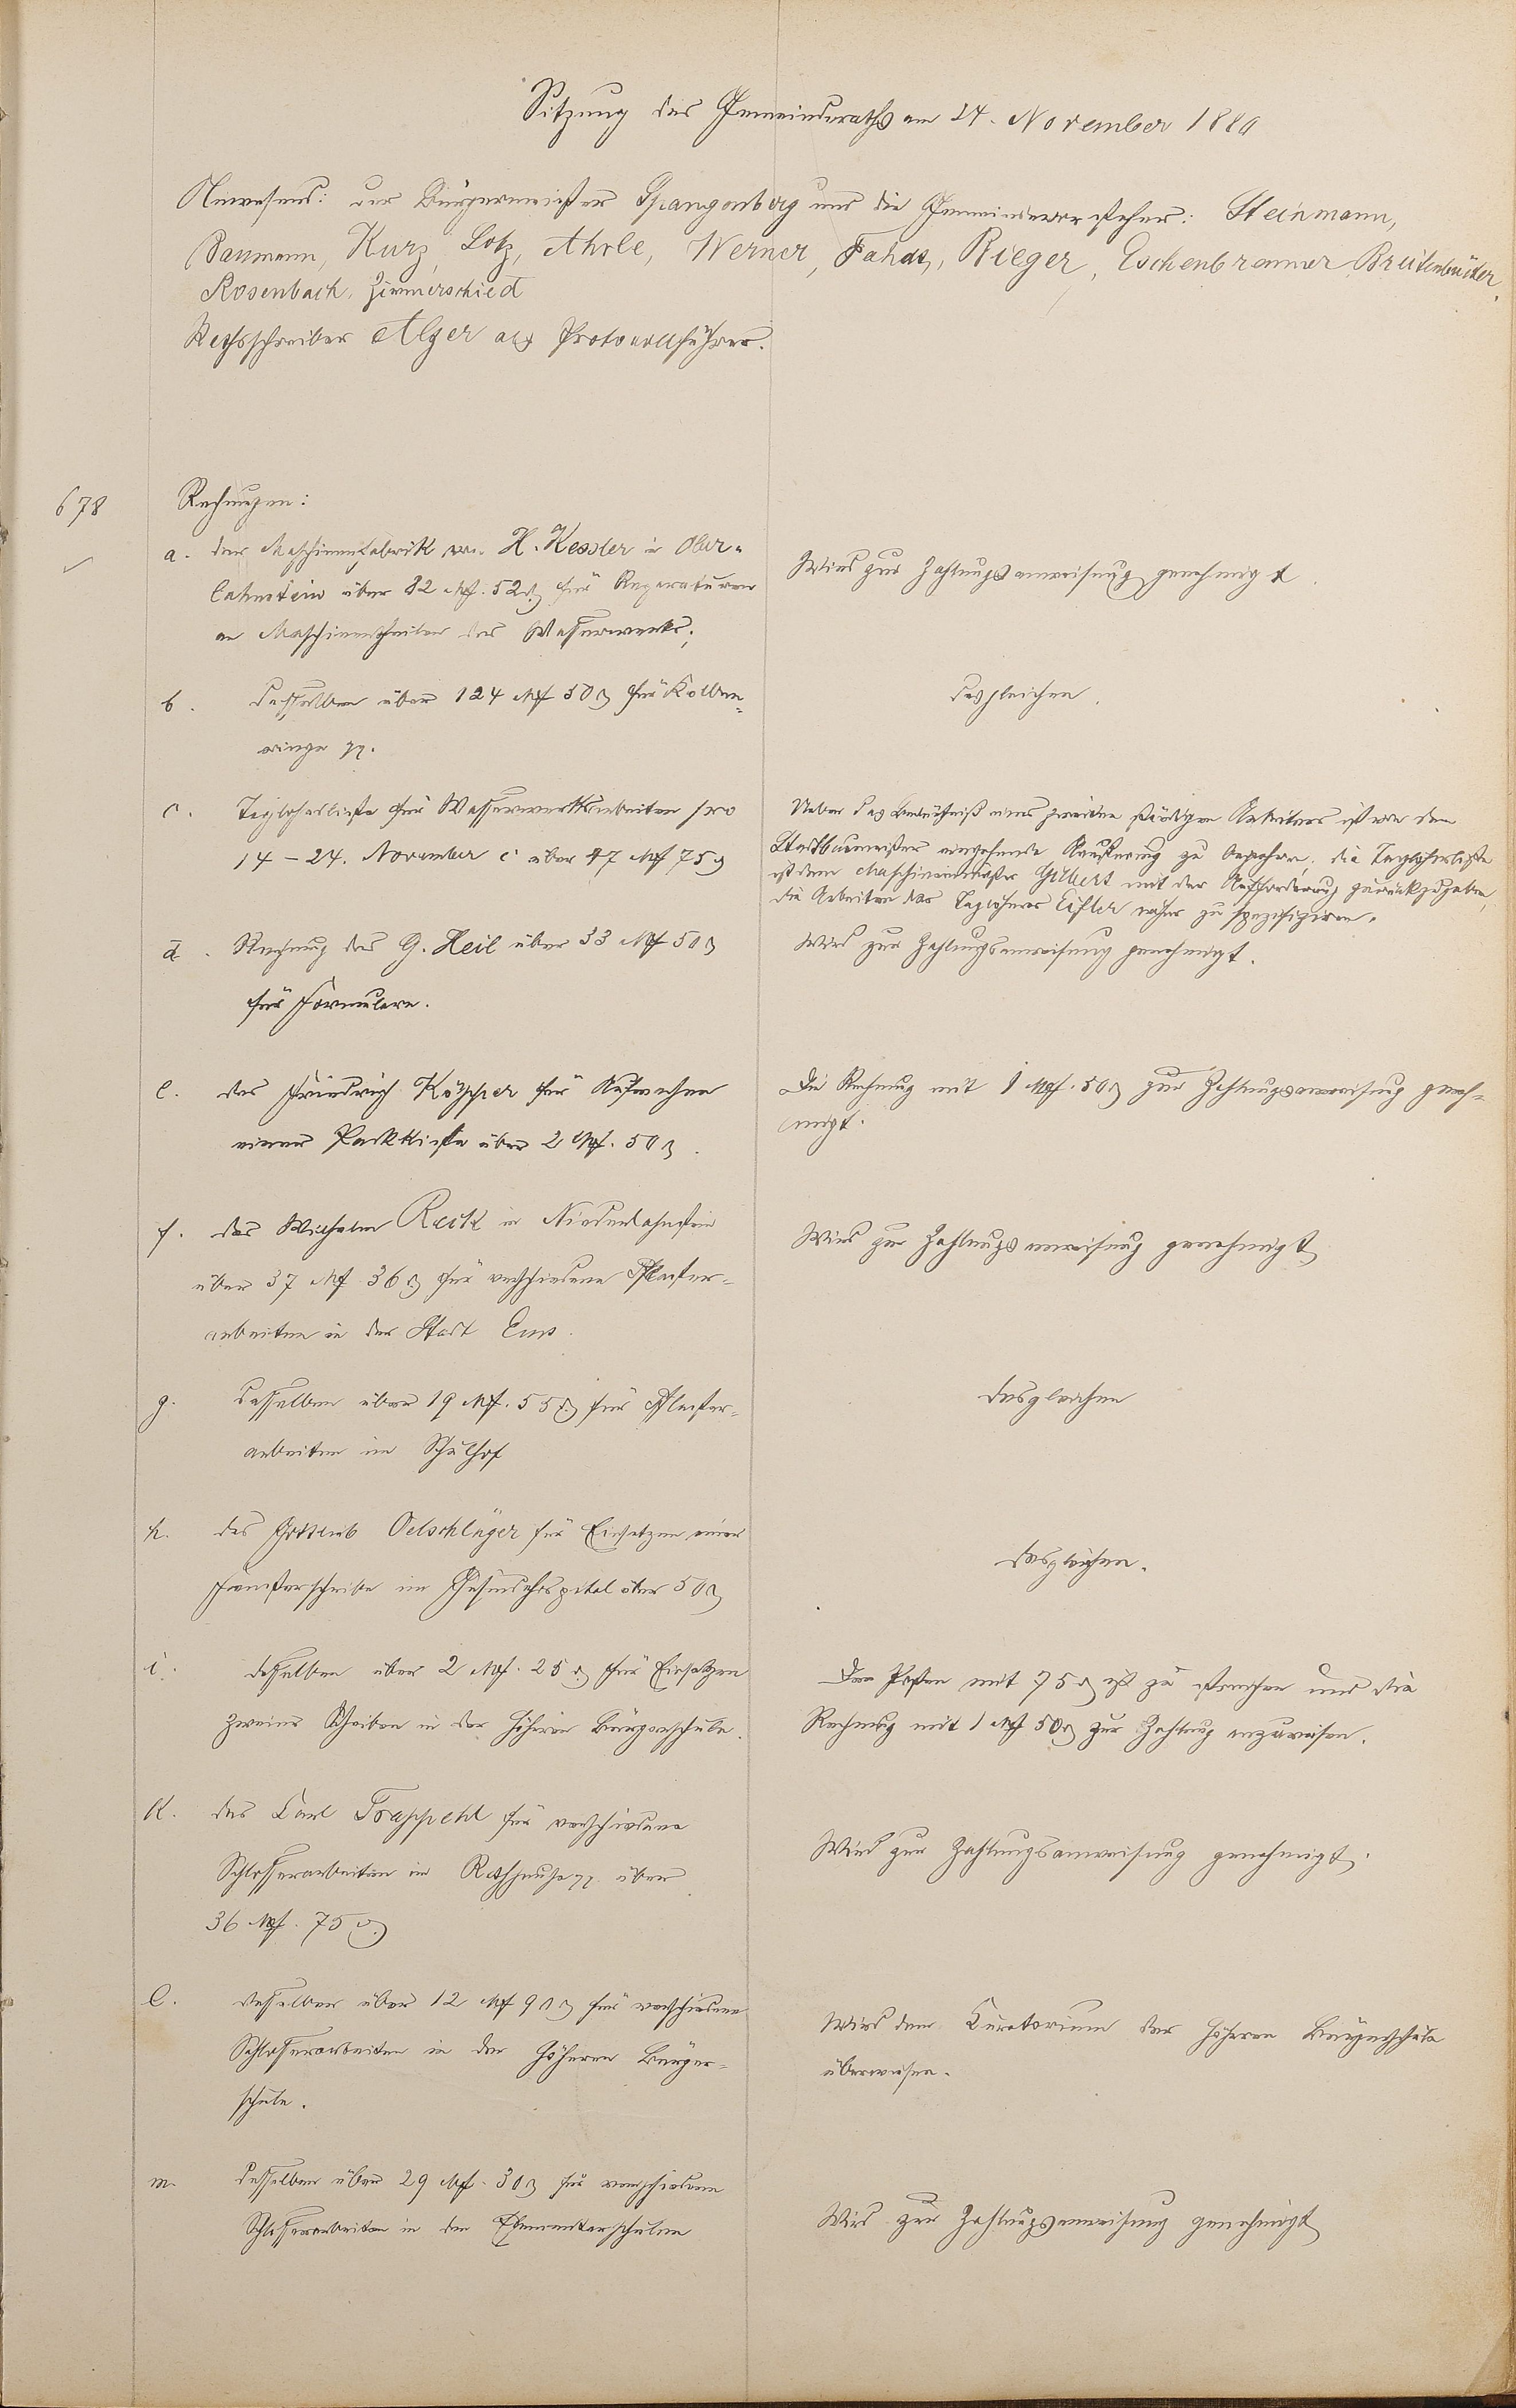 Sitzung des Gemeinderaths am 24. November 1880
Anwesend: der Bürgermeister Spangenberg und die Gemeindevorsteher: Steinmann,
Baumann, Kurz, Lotz, Ahrle, Werner, Fahdt, Rieger, Eschenbrenner Breitenbücher,
Rosenbach, Zimmerschied
Rathsschreiber Alger als Protocollführer.
678
Rechnungen:
a. der Maschinenfabrik von H. Kessler in Ober-
lahnstein über 82 Mk. 52 ₰ für Reparaturen
an Maschinentheilen des Wasserwerks;
Wird zur Zahlungsanweisung genehmigt.
b. desselben über 124 Mk 50 ₰ für Kolben-
ringe pp.
desgleichen.
c. Taglohnsliste für Wasserwerksarbeiten pro
14 – 24. November c. über 47 Mk 75 ₰
Ueber das Bedürfniß eines zweiten ständigen Arbeiters ist von dem
Stadtbaumeister eingehende Aeußerung zu begehren, die Taglohnsliste
ist dem Maschinenmeister Gilbert mit der Aufforderung zurückzugeben,
die Arbeiten des Taglöhners Eifler näher zu spezifiziren.
d. Rechnung des G. Heil über 33 Mk 50 ₰
für Formulare.
Wird zur Zahlungsanweisung genehmigt.
e. des Friedrich Köpper für Aufmachen
einer Packkiste über 2 Mk. 50 ₰.
Die Rechnung mit 1 Mk. 50 ₰ zur Zahlungsanweisung geneh-
migt.
f. des Wilhelm Reck in Niederlahnstein
über 37 Mk 36 ₰ für verschiedene Pflaster-
arbeiten in der Stadt Ems.
Wird zur Zahlungsanweisung genehmigt
g. desselben über 19 Mk. 55 ₰ für Pflaster-
arbeiten im Schulhof
desgleichen
h. des Gottlieb Oelschläger für Einsetzen einer
Fensterscheibe im Gesindehospital über 50 ₰
desgleichen.
i. desselben über 2 Mk. 25 ₰ für Einsetzen
zweier Scheiben in der höheren Bürgerschule.
Der Posten mit 75 ₰ ist zu streichen und die
Rechnung mit 1 Mk 50 ₰ zur Zahlung anzuweisen.
k. des Carl Trappehl für verschiedene
Schlosserarbeiten im Rathhause pp. über
36 Mk. 75 ₰
Wird zur Zahlungsanweisung genehmigt.
l. desselben über 12 Mk 90 ₰ für verschiedene
Schlosserarbeiten in der höheren Bürger-
schule.
Wird dem Curatorium der höheren Bürgerschule
überwiesen.
m. desselben über 29 Mk. 30 ₰ für verschiedene
Schlosserarbeiten in den Elementarschulen
Wird zur Zahlungsanweisung genehmigt